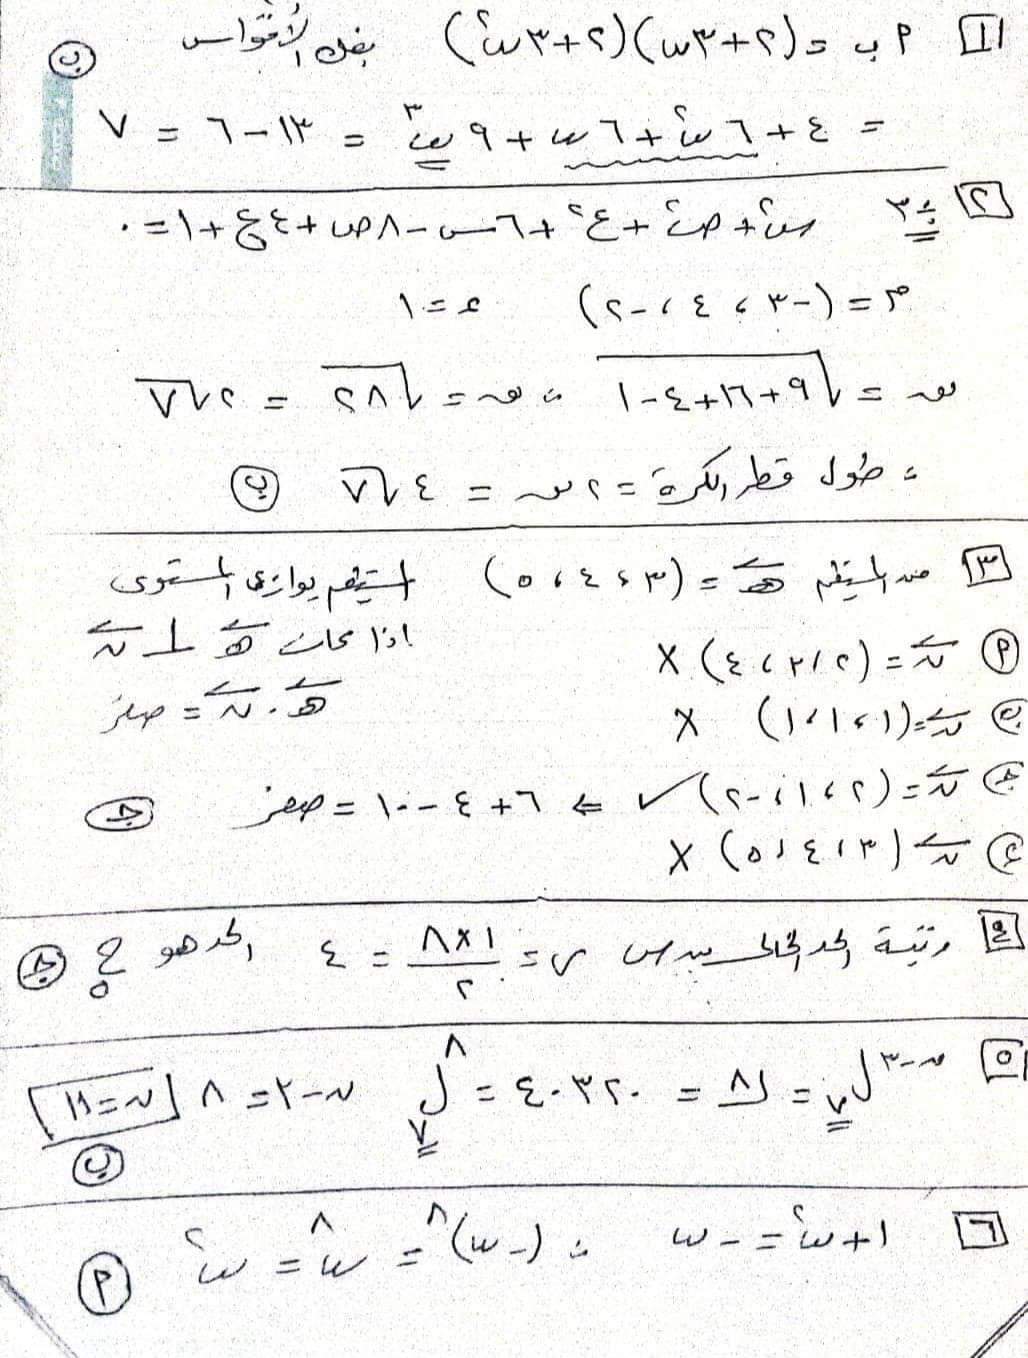 ١ ٢ ب = (٢+٣س)(٢+٣س٢) بفك الأقواس ب
= ٤+٦س٢+٦س+٩س٣ = ١٣-٦ = ٧
٢ ÷٣ س٢+ص٢+ع٢+٦س-٨ص+٤ع+١=٠
م = (-٣، ٤، -٢) ء = ١
نق = √٩+١٦+٤-١ ∴ نق = √٢٨ = ٢√٧
∴ طول قطر الكرة = ٢نق = ٤√٧ ب
٣ المستقيم هـ = (٣، ٤، ٥) المستقيم يوازي المستوى
اذا كان هـ ⊥ ن
أ ن = (٢، ٣، ٤) X
هـ . ن = صفر
ب ن = (١، ١، ١) X
ج ن = (٢، ١، -٢) ✓ ⇐ ٦+٤-١٠ = صفر ج
ء ن (٣، ٤، ٥) X
٤ رتبة الحد الخالى من س ر = ٨×١/٢ = ٤ الحد هو ح٥ ج
٥ ن-٣ل٧ = ٨ = ٤٠٣٢٠ = ٨ل٧ ن-٣ = ٨ ن=١١ ب
٦ ١+س٢ = -س ∴ (-س)٨ = س٨ = س٢ أ